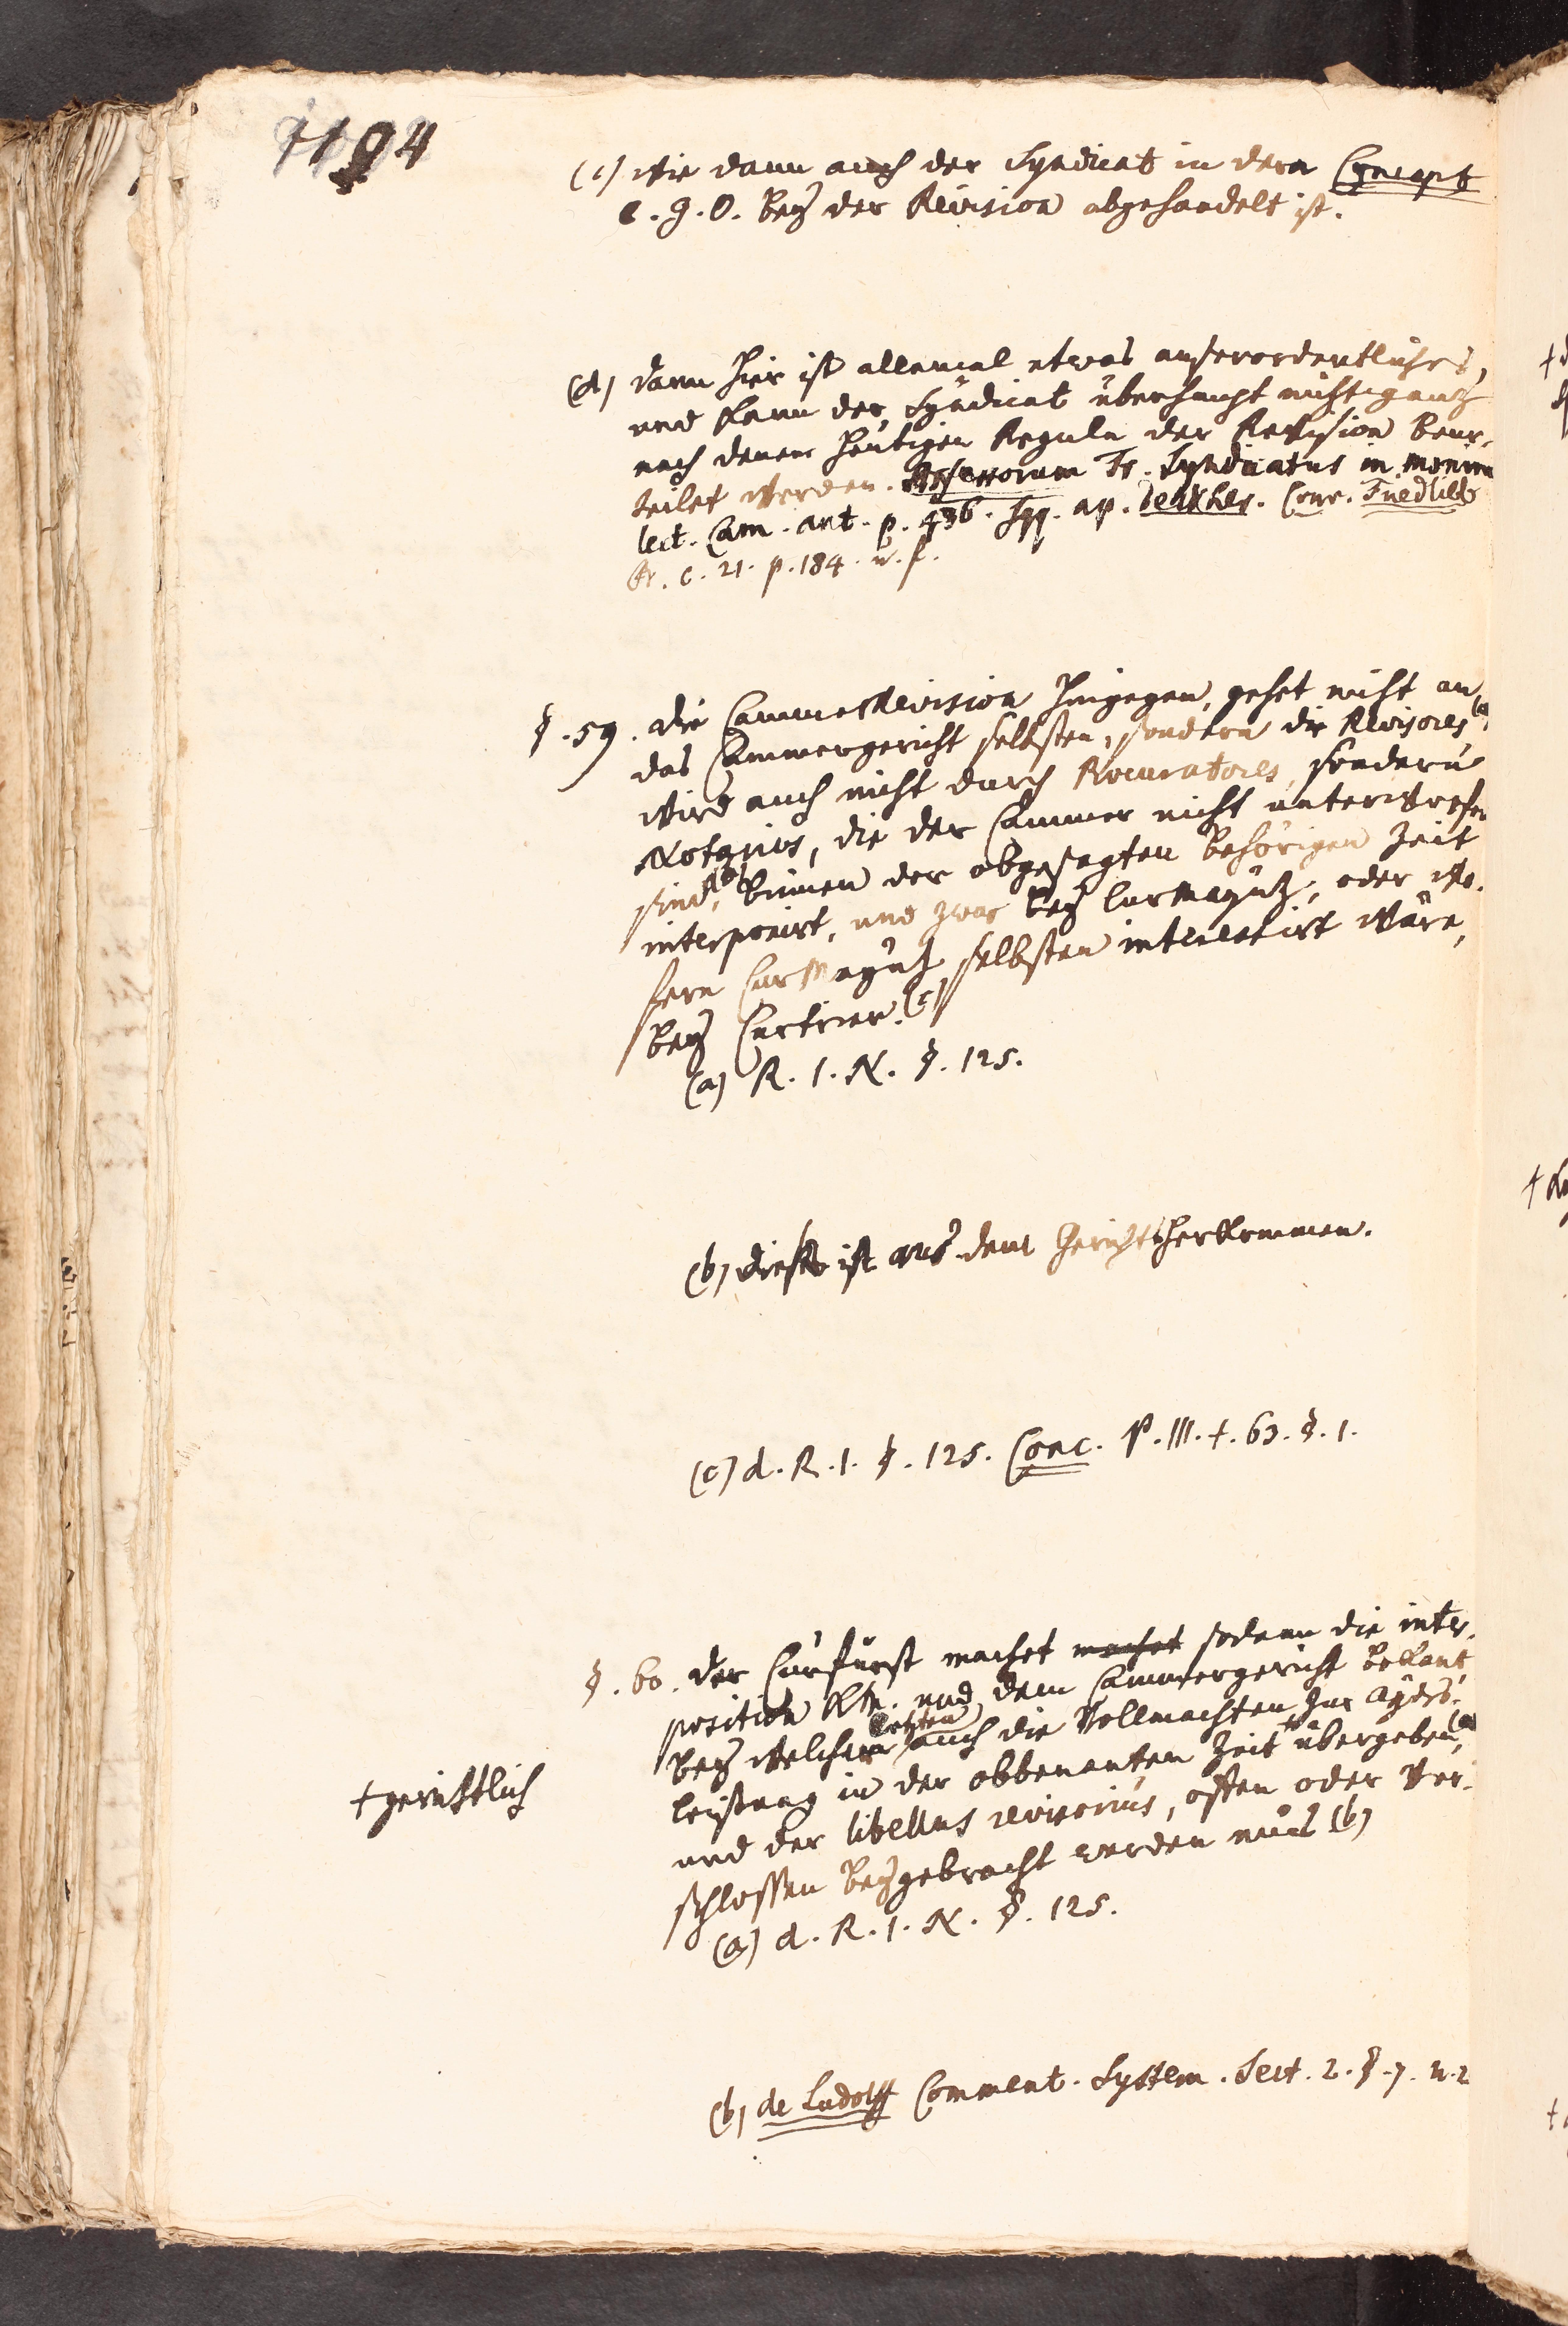 1194
(c) Wie dann auch der Syndicat in dem Concept
C. G. O. bey der Revision abgehandelt ist.
(d) dann hier ist allemal etwas außerordentliches,
und kann der Syndicat überhaupt nicht ganz
nach denen heutigen Reguln der Revision beur-
teilet werden. Assessorum Tr. Syndicatus in monum
lect. Cam. ant. p. 436. sqq. ap. Conr. Friedlieb
Tr. c. 21. p. 184. u. f.
§. 59. die CammerRevision hingegen, gehet nicht an
das Cammergericht selbsten, sondern die Revisores (a)
wird auch nicht durch Procuratores, sondern
Notarios, die der Cammer nicht unterworfen
sind, (b) binnen der obgesagten behörigen Zeit
interponirt, und zwar bey CurMaynz, oder wo-
fern CurMaynz selbsten interessirt wäre,
bey Curtrier. (c)
(a) R. I. N. §. 125.
(b) dieses ist aus dem Gerichtsherkommen.
(c) d. R. I. §. 125. Conc. P. III. t. 63. §. 1.
§. 60. der Curfürst machet machet sodann die inter-
position und dem Cammergericht bekant,
letzten
bey welchem auch die Vollmachten zur Ayds-
leistung in der obbenanten Zeit + übergeben, (a)
+ gerichtlich
und der libellus revisorius, offen oder ver-
schlossen beygebracht werden mus (b)
(a) d. R. I. N. §. 125.
(b) de Ludolff Comment. System. Sect. 2. §. 7. n. 2